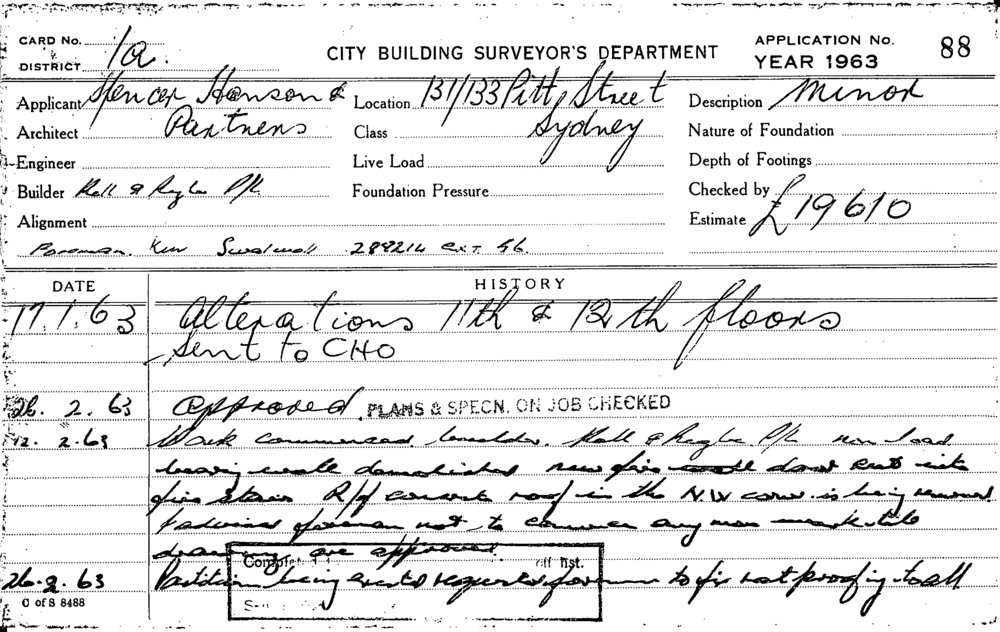 CARD No. 1a.
DISTRICT
CITY BUILDING SURVEYOR'S DEPARTMENT
APPLICATION No. 88
YEAR 1963
Applicant Spencer Hanson &
Architect Partners
Engineer
Builder Kell & Rigby P/L
Alignment
Foreman. Ken 289214 ext. 46.
Location 131/133 Pitt Street
Class Sydney
Live Load
Foundation Pressure
Description Minor
Nature of Foundation
Depth of Footings
Checked by
Estimate £19610
DATE
HISTORY
17.1.63 Alterations 11th & 12th floors
Sent to CHO
26.2.63 Approved. PLANS & SPECN. ON JOB CHECKED
12.2.63 Work commenced builder. Kell & Rigby P/L non load
bearing walls demolished new fire door cut into
fire stairs R/f concrete roof in the N.W corner is being removed
I advised foreman not to commence any more work till
drawings are approved.
26.2.63 Partitions being erected requested foreman to fix rat proofing to all
O of S 8488